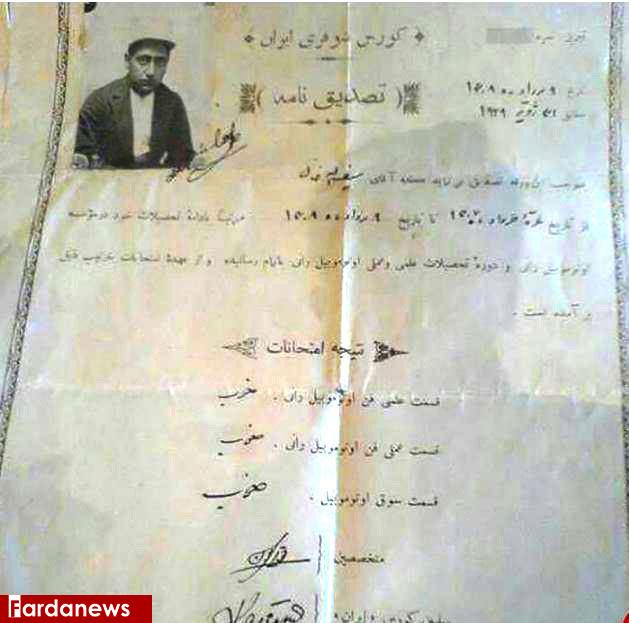 کورس شوفری ایران
تصدیق نامه
تاریخ ۹ مرداد ۱۳۰۸
مطابق ۳۱ ژویه ۱۹۲۹
ورقه تصدیق مینماید آقای
از تاریخ خرداد تا تاریخ ۹ مرداد ۱۳۰۸ مرتباً بادامهٔ تحصیلات خود در مؤسسه
اوتوموبیل رانی و دورهٔ تحصیلات علمی و عملی اوتوموبیل رانی باتمام رسانیده و از عهدهٔ امتحانات بترتیب ذیل
بر آمده است .
نتیجه امتحانات
قسمت علمی فن اوتوموبیل رانی . خوب
قسمت عملی فن اوتوموبیل رانی . خوب
قسمت سوق اوتوموبیل . خوب
متخصصین
کورس «ایران»
Fardanews